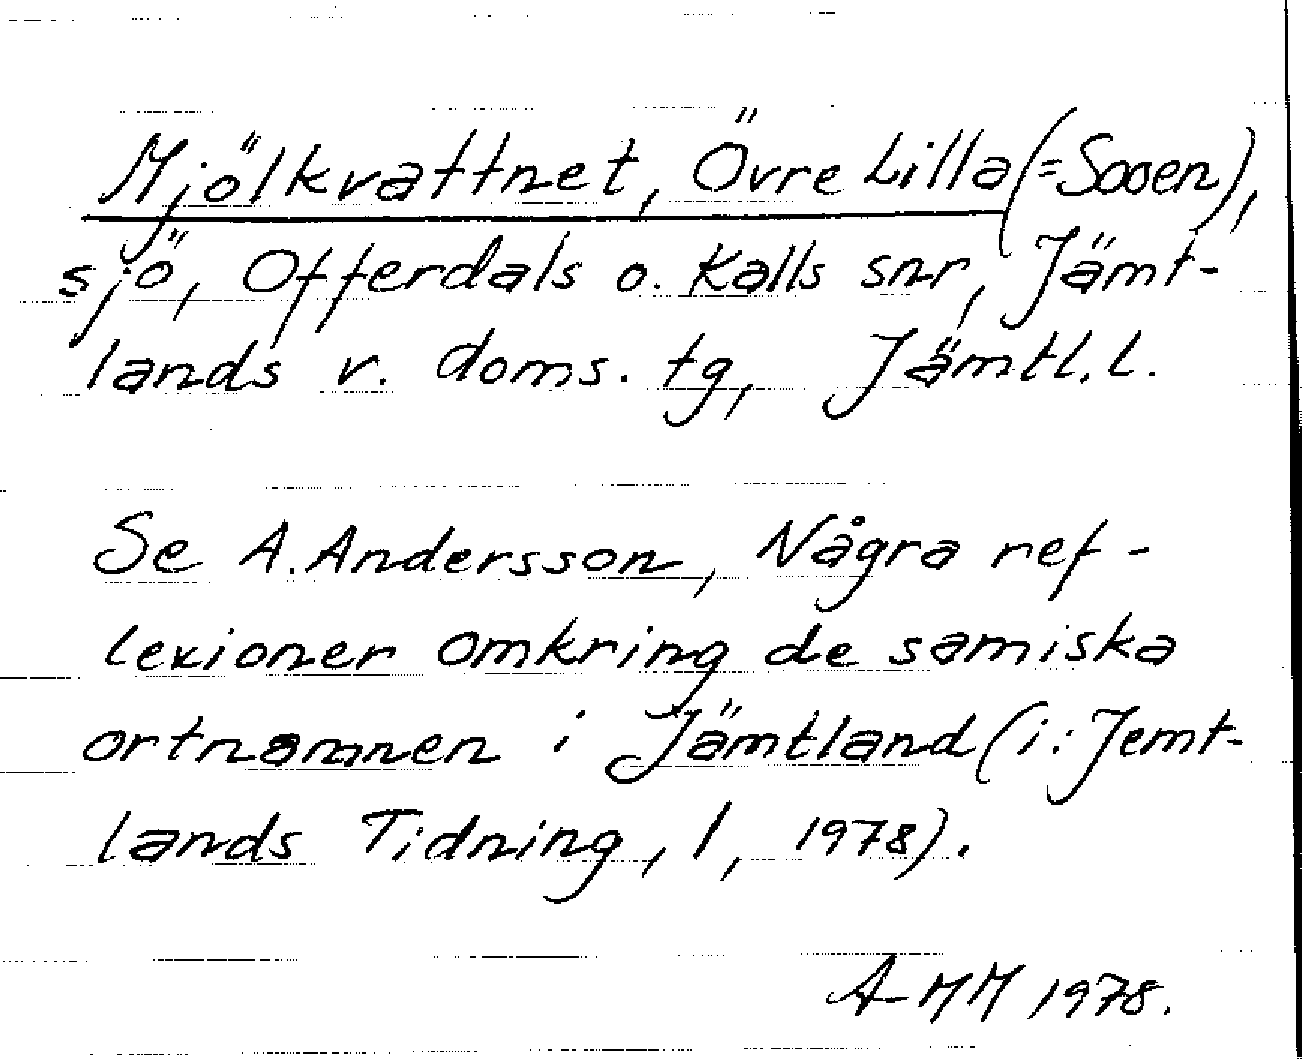 Mjölkvattnet, Övre Lilla (=Sooen),
sjö, Offerdals o. Kalls snr, Jämt-
lands v. doms. tg, Jämtl.l.
Se A. Andersson, Några ref-
lexioner omkring de samiska
ortnamnen i Jämtland (i: Jemt-
lands Tidning, 1, 1978).
A-MM 1978.